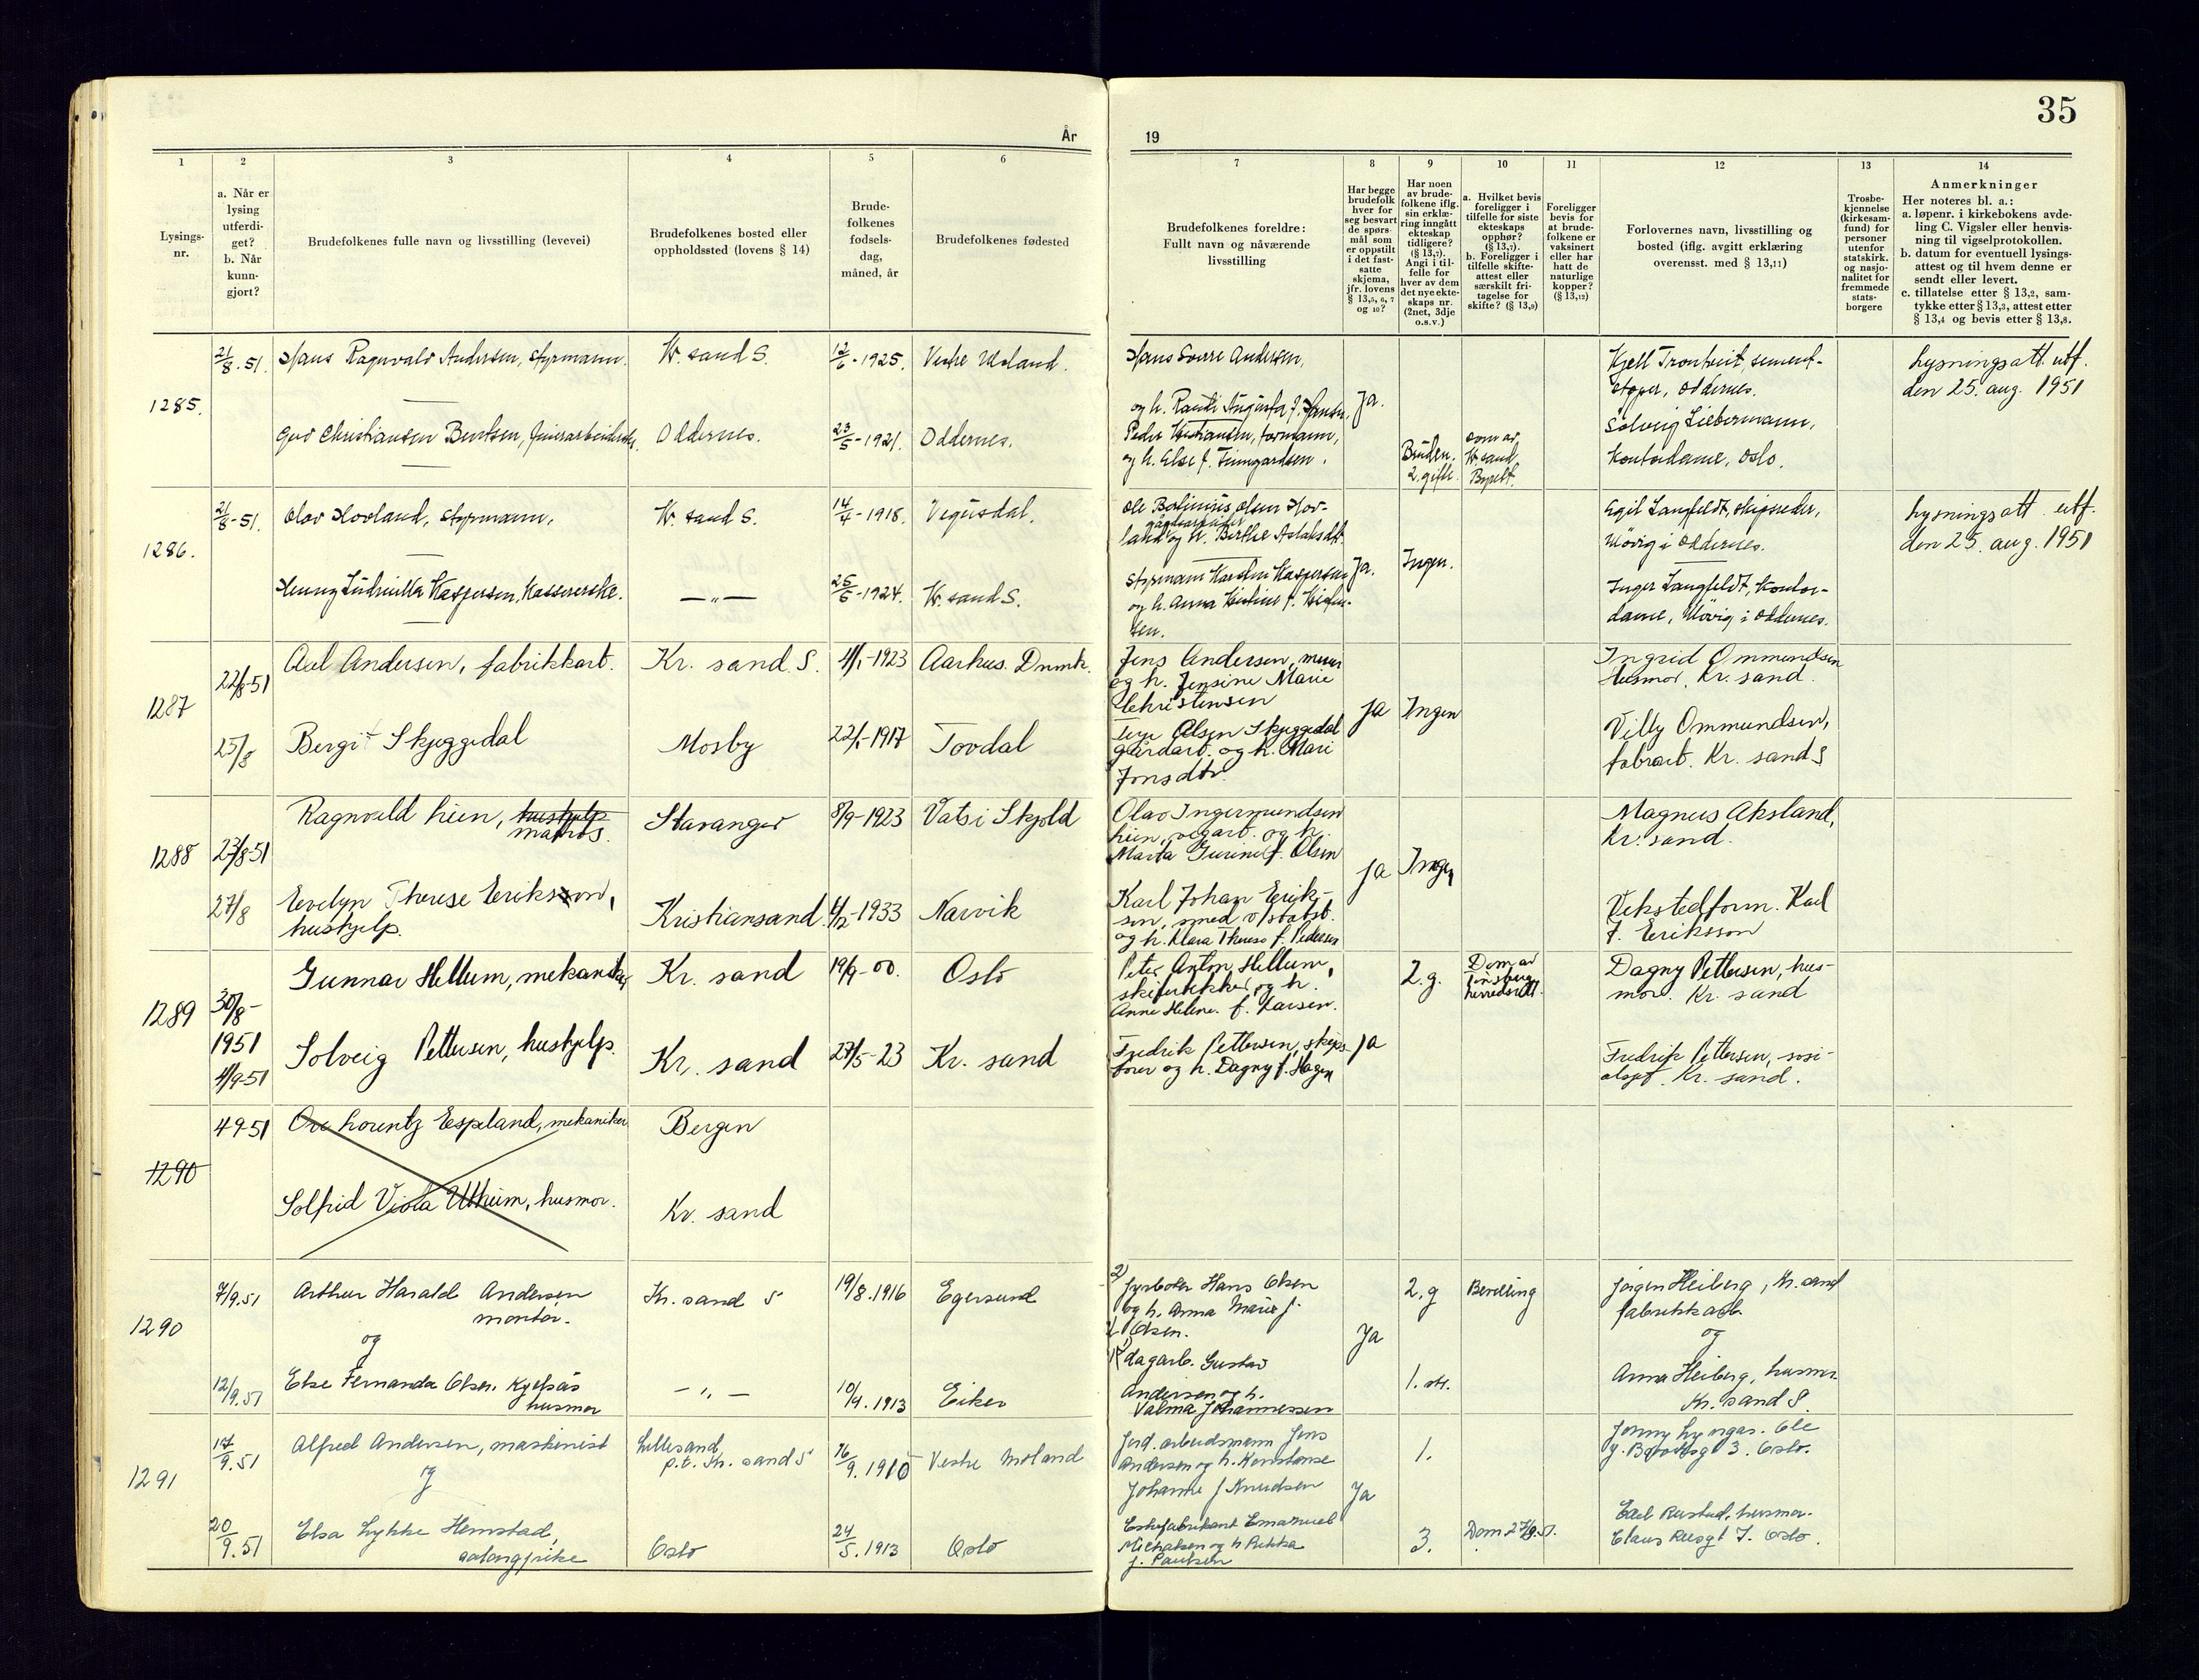 35
År
19
1
2
3
4
5
6
7
8
9
10
11
12
13
14
Lysings-
nr.
a. Når er
lysing
utferdi-
get?
b. Når
kunn-
gjort?
Brudefolkenes fulle navn og livsstilling (levevei)
Brudefolkenes bosted eller
oppholdssted (lovens § 14)
Brude-
folkenes
fødsels-
dag,
måned, år
Brudefolkenes fødested
Brudefolkenes foreldre:
Fullt navn og nåværende
livsstilling
Har begge
brudefolk
hver for
seg besvart
de spørs-
mål som
er oppstilt
i det fast-
satte
skjema,
jfr. lovens
§ 13,5, 6, 7
og 10?
Har noen
av brude-
folkene iflg.
sin erklæ-
ring inngått
ekteskap
tidligere?
(§ 13,7).
Angi i til-
felle for
hver av dem
det nye ekte-
skaps nr.
(2net, 3dje
o.s.v.)
a. Hvilket bevis
foreligger i
tilfelle for siste
ekteskaps
opphør?
(§ 13,7).
b. Foreligger i
tilfelle skifte-
attest eller
særskilt fri-
tagelse for
skifte? (§ 13,9)
Foreligger
bevis for
at brude-
folkene er
vaksinert
eller har
hatt de
naturlige
kopper?
(§ 13,12)
Forlovernes navn, livsstilling og
bosted (iflg. avgitt erklæring
overensst. med § 13,11)
Trosbe-
kjennelse
(kirkesam-
fund) for
personer
utenfor
statskirk.
og nasjo-
nalitet for
fremmede
stats-
borgere
Anmerkninger
Her noteres bl. a.:
a. løpenr. i kirkebokens avde-
ling C. Vigsler eller henvis-
ning til vigselprotokollen.
b. datum for eventuell lysings-
attest og til hvem denne er
sendt eller levert.
c. tillatelse etter § 13,2, sam-
tykke etter § 13,3, attest etter
§ 13,4 og bevis etter § 13,8.
1285.
21/8. 51.
Hans Ragnvald Andersen, styrmann.
Kr. sand S.
12/6-1925.
Vestre Moland.
Hans Sverre Andersen,
og h. Randi Augusta f. Hansen.
Ja.
Kjell Trontveit, sement-
støper, Oddernes.
Lysningsatt. utf.
den 25. aug. 1951
Gerd Christiansen Berntsen,
Oddernes.
23/5-1921.
Oddernes.
Peder Kristiansen, formann,
og h. Else f. Finngardsen.
Bruden.
2. gifte.
dom av
Kr. sand
Byrett.
Solveig Liebermann,
Kontordame, Oslo.
1286.
21/8-51.
Olav Hovland, styrmann,
Kr. sand S.
14/4-1918.
Vegusdal.
Ole Olsen Hov-
land og h. Birthe Aslaksdtr.
Egil Langfeldt, skipsreder,
Møvig i Oddernes.
Lysningsatt. utf.
den 25. aug. 1951
Henny Ludvikka Kaspersen, Kassererske.
— " —
25/6-1924.
Kr. sand S.
Styrmann Karsten Kaspersen
og h. Anna Kristine f. Kristen-
sen.
Ja.
Ingen.
Inger Langfeldt, Kontor-
dame, Møvig i Oddernes.
1287
22/8-51
Axel Andersen, fabrikkarb.
Kr. sand S.
4/1-1923
Aarhus. Dnmk.
Jens Andersen, murer
og h. Jensine Marie
Christensen
Ja
Ingen
Ingrid Ommundsen
Husmor, Kr. sand.
25/8
Bergit Skjeggedal
Mosby
22/1-1917
Tovdal
Terje Olsen Skjeggedal
gårdarb. og h. Mari
Jonsdtr.
Villy Ommundsen,
fabrarb. Kr. sand S
1288
23/8-51
Ragnvald Lien, hushjelp
matros.
Stavanger
8/9-1923
Vats i Skjold
Olav Ingermundsen
Lien, vegarb. og h.
Marta Gurine f. Olsen
Ja
Ingen
Magnus Aksland,
Kr. sand.
27/8
Evelyn Therese Eriksson,
hushjelp.
Kristiansand
4/12-1933
Narvik
Karl Johan Erik-
sen, smed v/statsb.
og h. Klara Therese f. Pedersen
Vekstedform. Karl
J. Eriksson
1289
30/8-
1951
4/9-51
Gunnar Hellum, mekaniker
Kr. sand
19/9-00.
Oslo
Peter Anton Hellum,
skifertekker, og h.
Anne Helene f. Larsen.
2. g.
Dom av
Tinsberg
herredsrett.
Dagny Pettersen, hus-
mor. Kr. sand
Solveig Pettersen, hushjelp.
Kr. sand
27/5-23
Kr. sand
Fredrik Pettersen, skips-
fører og h. Dagny f. Hagen
Ja
Fredrik Pettersen, sosi-
alsjef. Kr. sand.
1290
4 9-51
Ove Lorentz Espeland, mekaniker
Bergen
Solfrid Viola Utheim, husmor.
Kr. sand
1290
7/9.51
Arthur Harald Andersen
montør.
og
Kr. sand S
19/8.1916
Egersund
2) fyrbøter Hans Olsen
og h. Anna Marie f.
Olsen.
Ja
2. g
Bevilling
Jørgen Heiberg, Kr. sand
fabrikkarb.
og
12/9.51
Else Fernanda Olsen. Kjelsås
husmor
— " —
10/4.1913
Eiker
1) dagarb. Gustav
Andersen og h.
Valma Johannessen
1. str.
Anna Heiberg, husmor
Kr. sand S.
1291
17/9.51
Alfred Andersen, maskinist
og
Lillesand,
p.t. Kr. sand S
16/9.1910
Vestre Moland
Jord. arbeidsmann Jens
Andersen og h. Konstanse
Johanne f Knudsen
Ja
1.
Jonny Lyngas. Ole
3. Oslo.
20/9.51
Elsa Lykke Hemstad,
Oslo
24/5.1913
Oslo
Eskefabrikant Emanuel
Michalsen og h Rikka
f. Paulsen
3.
Dom. 27/9.51.
Rustad, husmor.
Claus Riisgt 7. Oslo.